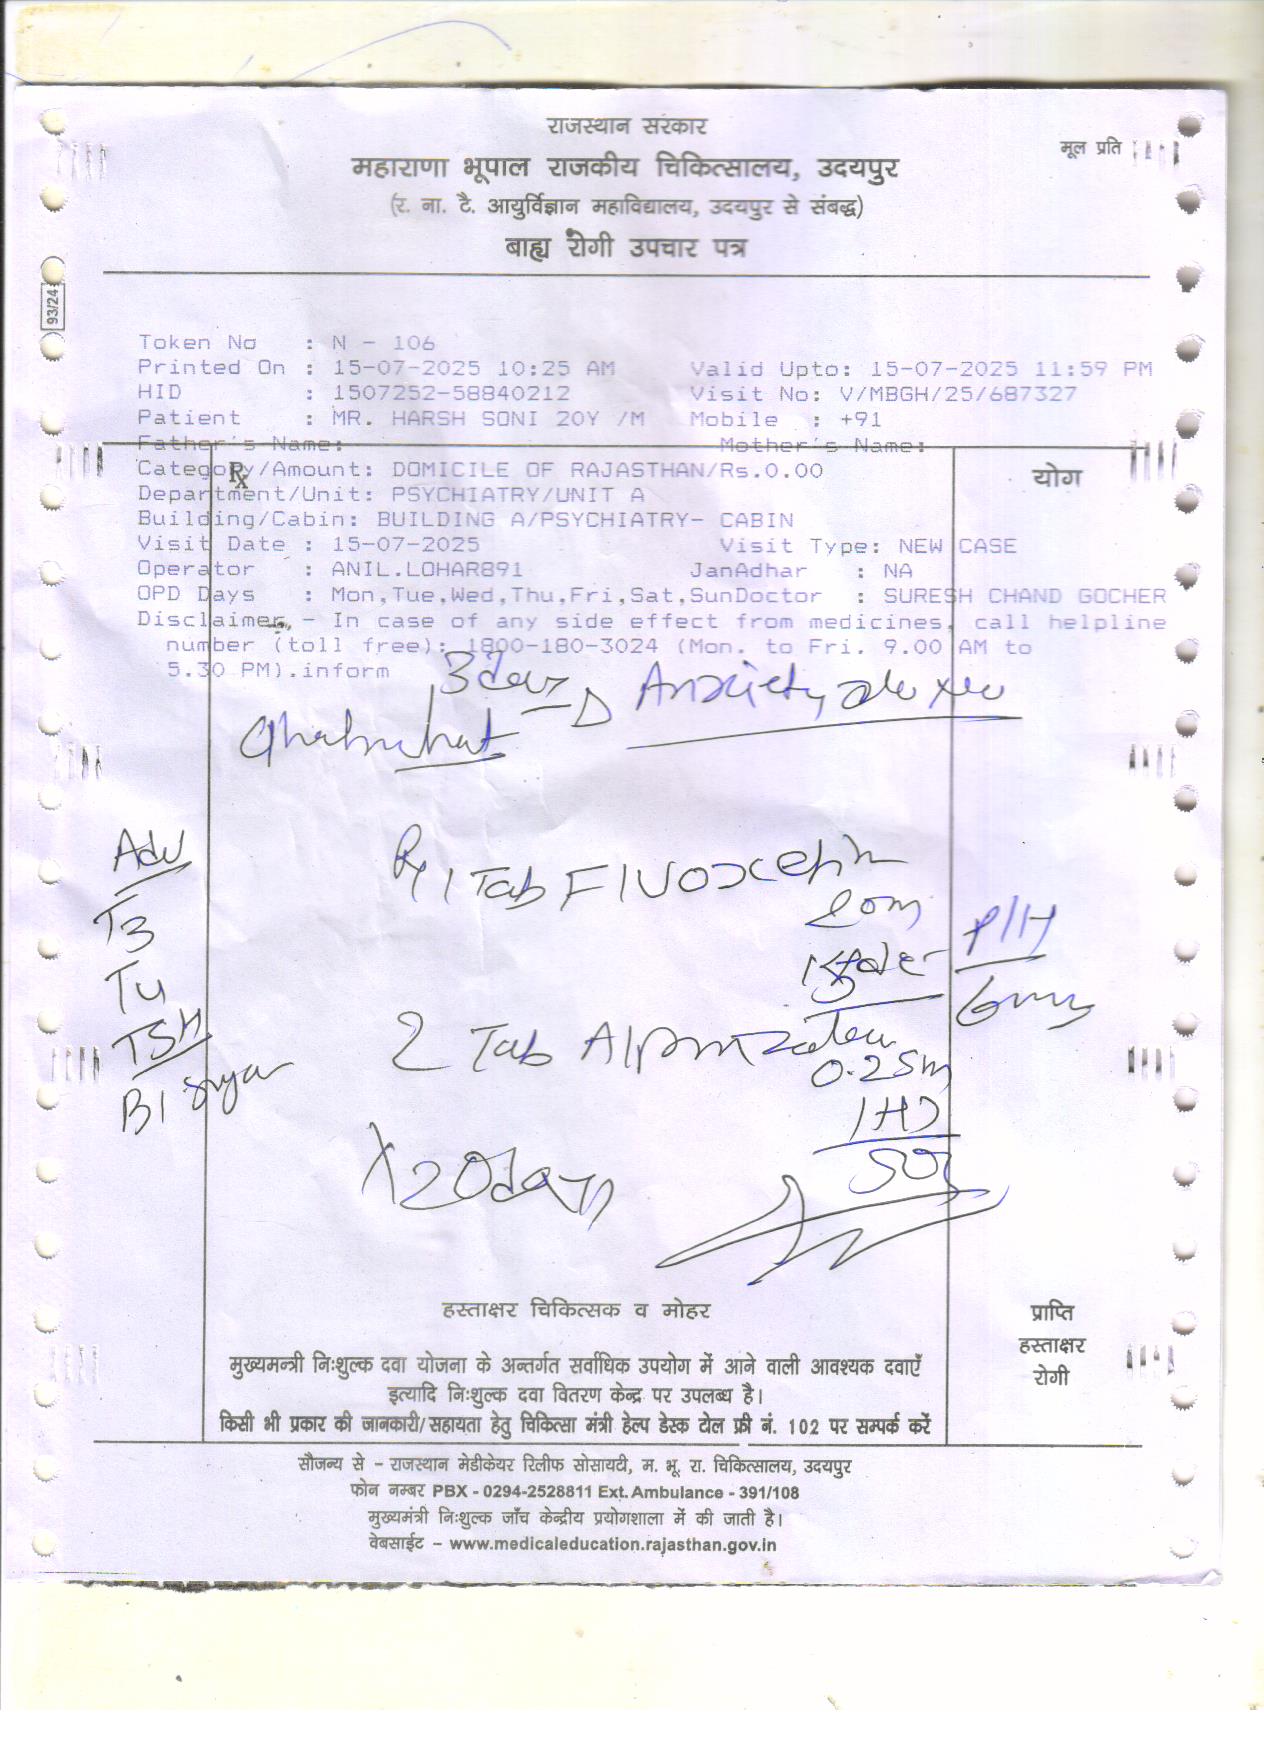 राजस्थान सरकार
मूल प्रति
महाराणा भूपाल राजकीय चिकित्सालय, उदयपुर
(र. ना. टै. आयुर्विज्ञान महाविद्यालय, उदयपुर से संबद्ध)
बाह्य रोगी उपचार पत्र
93/24
Token No : N - 106
Printed On : 15-07-2025 10:25 AM Valid Upto: 15-07-2025 11:59 PM
HID : 1507252-58840212 Visit No: V/MBGH/25/687327
Patient : MR. HARSH SONI 20Y /M Mobile : +91
Father's Name: Mother's Name:
Category/Amount: DOMICILE OF RAJASTHAN/Rs.0.00
℞ योग
Department/Unit: PSYCHIATRY/UNIT A
Building/Cabin: BUILDING A/PSYCHIATRY- CABIN
Visit Date : 15-07-2025 Visit Type: NEW CASE
Operator : ANIL.LOHAR891 JanAdhar : NA
OPD Days : Mon,Tue,Wed,Thu,Fri,Sat,SunDoctor : SURESH CHAND GOCHER
Disclaimer - In case of any side effect from medicines, call helpline
number (toll free): 1800-180-3024 (Mon. to Fri. 9.00 AM to
5.30 PM).inform
3 days Δ Anxiety
Ghabrahat
Adv
T3
T4
TSH
B1 sugar
Rx 1 Tab Fluoxetin
20m
P/H
2 Tab Alprazolam
0.25m
1HS
SOS
x 20 days
हस्ताक्षर चिकित्सक व मोहर
प्राप्ति
हस्ताक्षर
रोगी
मुख्यमन्त्री निःशुल्क दवा योजना के अन्तर्गत सर्वाधिक उपयोग में आने वाली आवश्यक दवाएँ
इत्यादि निःशुल्क दवा वितरण केन्द्र पर उपलब्ध है।
किसी भी प्रकार की जानकारी/सहायता हेतु चिकित्सा मंत्री हेल्प डेस्क टोल फ्री नं. 102 पर सम्पर्क करें
सौजन्य से – राजस्थान मेडीकेयर रिलीफ सोसायटी, म. भू. रा. चिकित्सालय, उदयपुर
फोन नम्बर PBX - 0294-2528811 Ext. Ambulance - 391/108
मुख्यमंत्री निःशुल्क जाँच केन्द्रीय प्रयोगशाला में की जाती है।
वेबसाईट – www.medicaleducation.rajasthan.gov.in